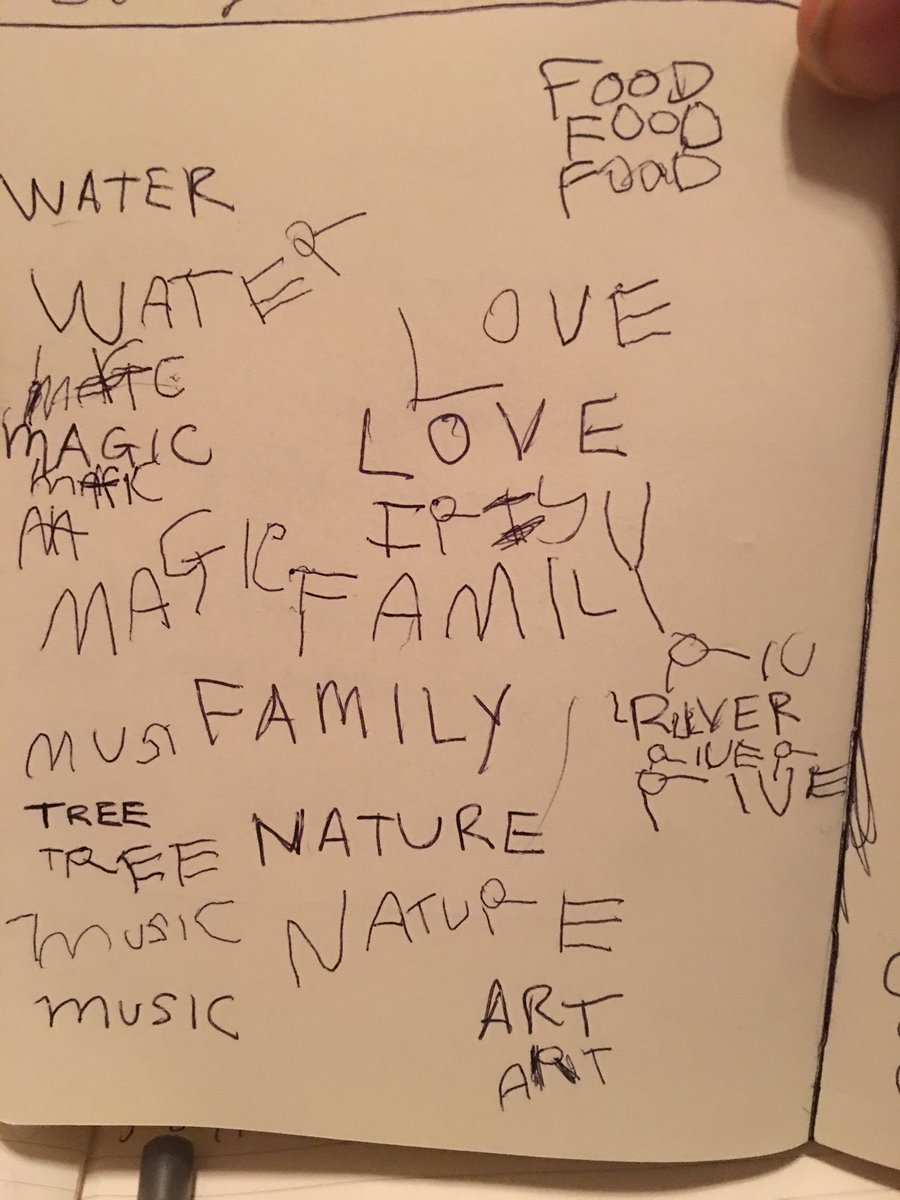 FOOD
FOOD
FOOD
WATER
WATER
LOVE
LOVE
MAGIC
MAGIC
FAMILY
FAMILY
MUSI
RIV
RIVER
RIVER
RIVE
TREE
TREE
NATURE
NATURE
MUSIC
MUSIC
ART
ART